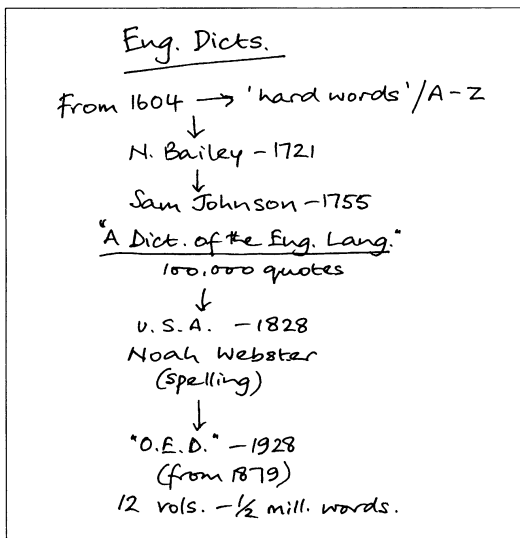 Eng. Dicts.
From 1604 → 'hard words'/A-Z
↓
N. Bailey - 1721
↓
Sam Johnson - 1755
"A Dict. of the Eng. Lang."
100,000 quotes
↓
U.S.A. - 1828
Noah Webster
(spelling)
↓
"O.E.D." - 1928
(from 1879)
12 vols. - ½ mill. words.